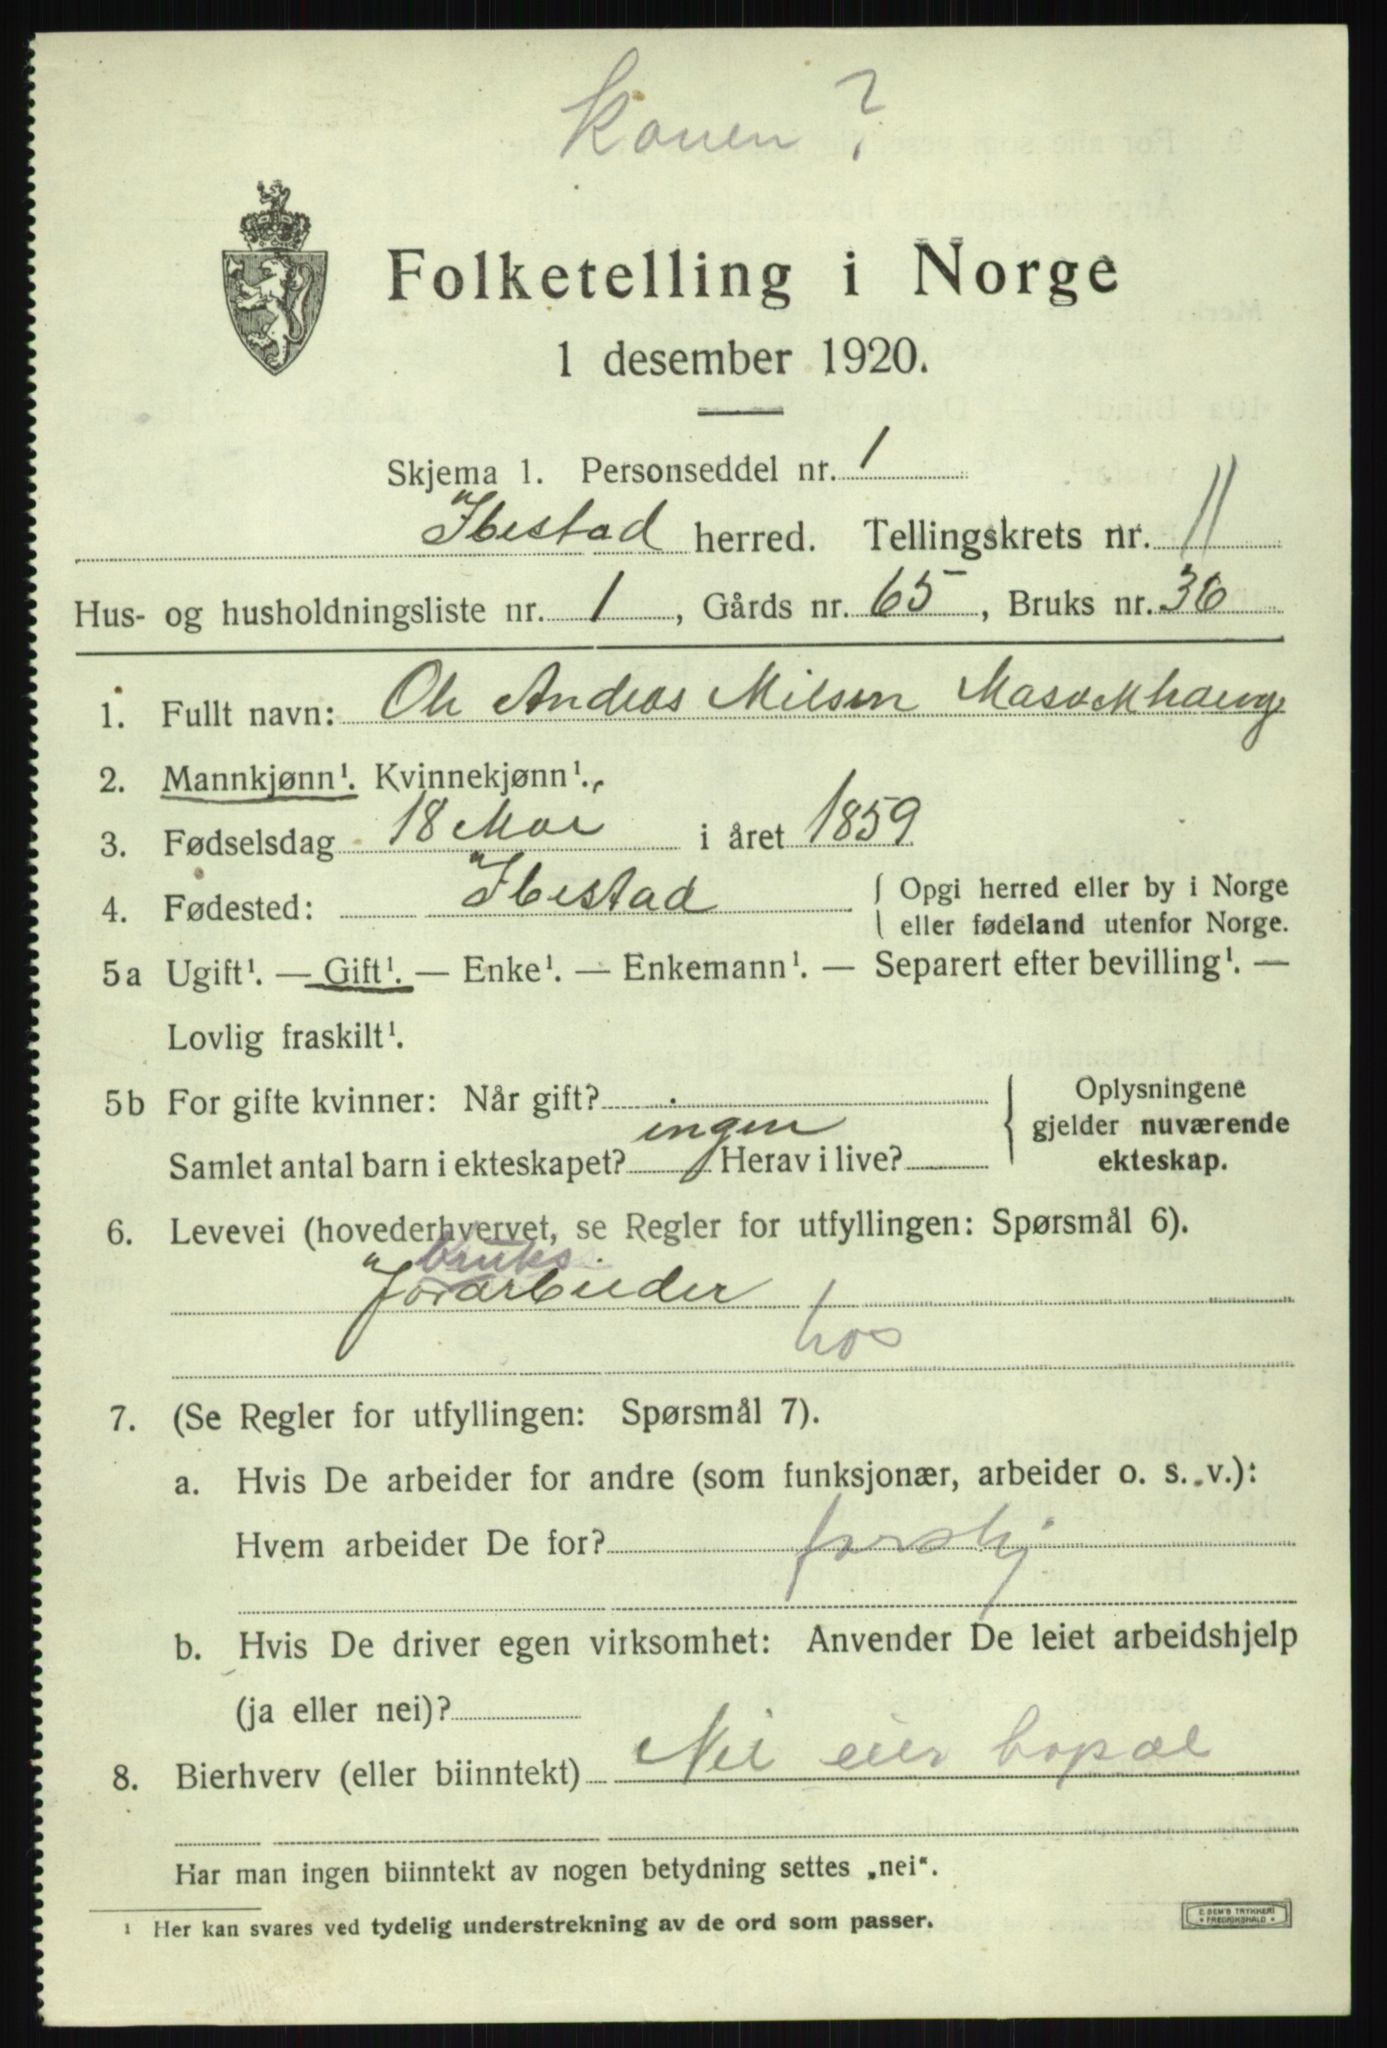 Konen ?
Folketelling i Norge
1 desember 1920.
Skjema 1. Personseddel nr. 1
Ibestad herred. Tellingskrets nr. 11
Hus- og husholdningsliste nr. 1, Gårds nr. 65, Bruks nr. 36
1. Fullt navn: Ole Andreas Nilsen
2. Mannkjønn¹. Kvinnekjønn¹.
3. Fødselsdag 18 Mar i året 1859
4. Fødested: Ibestad { Opgi herred eller by i Norge
eller fødeland utenfor Norge.
5a Ugift¹. — Gift¹. — Enke¹. — Enkemann¹. — Separert efter bevilling¹. —
Lovlig fraskilt¹.
5b For gifte kvinner: Når gift? { Oplysningene
gjelder nuværende
ekteskap.
Samlet antal barn i ekteskapet? ingen Herav i live?
6. Levevei (hovederhvervet, se Regler for utfyllingen: Spørsmål 6).
bruks
Jorarbeider
hos
7. (Se Regler for utfyllingen: Spørsmål 7).
a. Hvis De arbeider for andre (som funksjonær, arbeider o. s. v.):
Hvem arbeider De for? forskj
b. Hvis De driver egen virksomhet: Anvender De leiet arbeidshjelp
(ja eller nei)?
8. Bierhverv (eller biinntekt) Nei eier bopæl
Har man ingen biinntekt av nogen betydning settes „nei“.
¹ Her kan svares ved tydelig understrekning av de ord som passer.
E. SEM'S TRYKKERI
FREDRIKSHALD